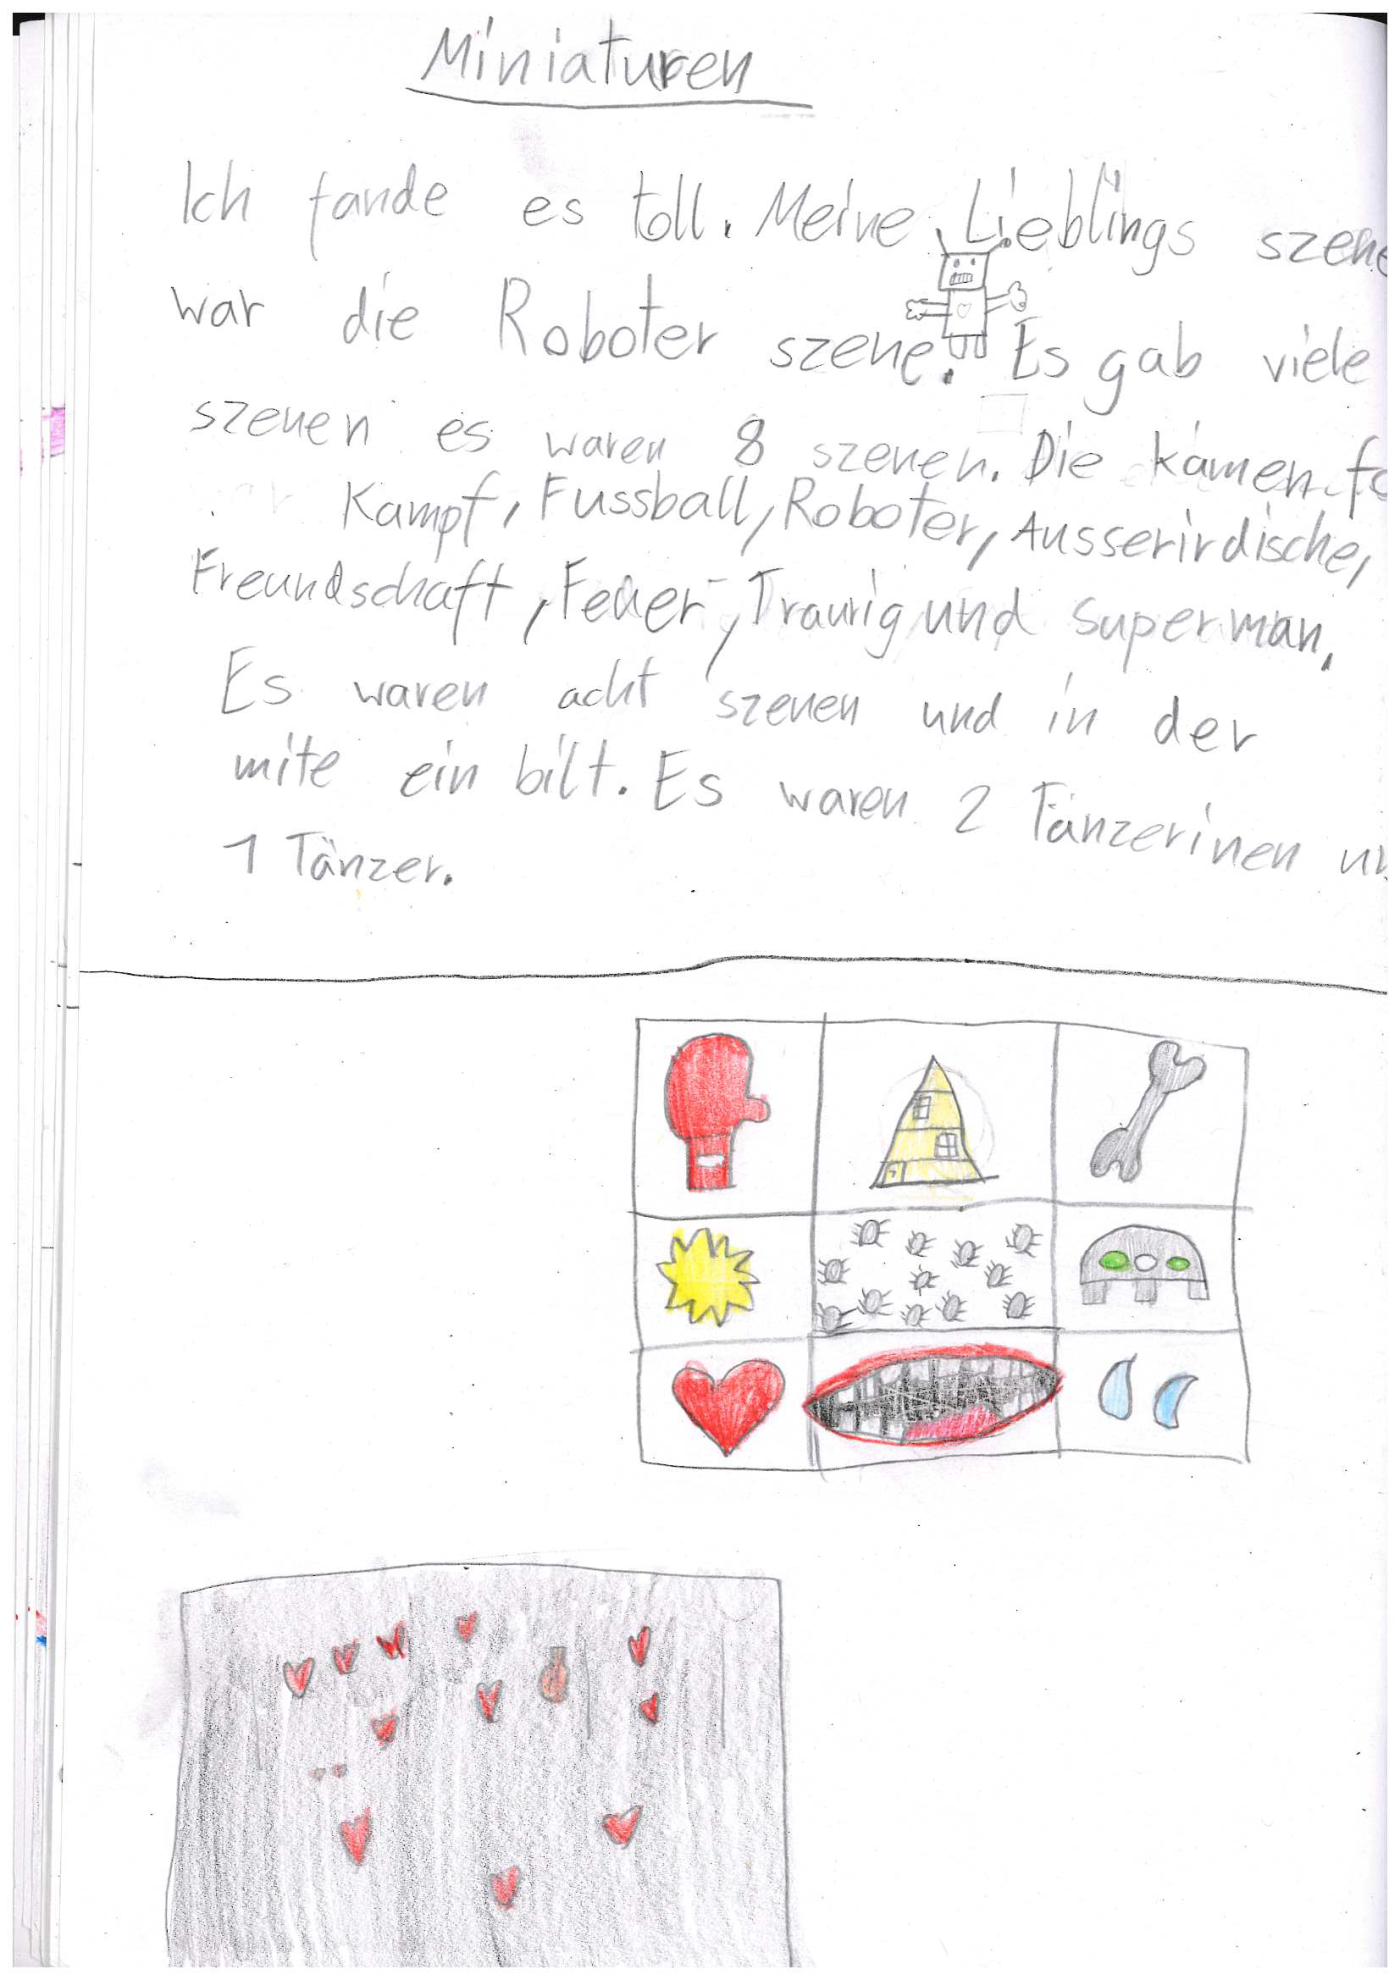 Miniaturen
Ich fande es toll. Meine Lieblings szene
war die Roboter szene. Es gab viele
szenen es waren 8 szenen. Die kamen
Kampf, Fussball, Roboter, Ausserirdische,
Freundschaft, Feuer, Traurig und Superman.
Es waren acht szenen und in der
mite ein bilt. Es waren 2 Tänzerinen
1 Tänzer.